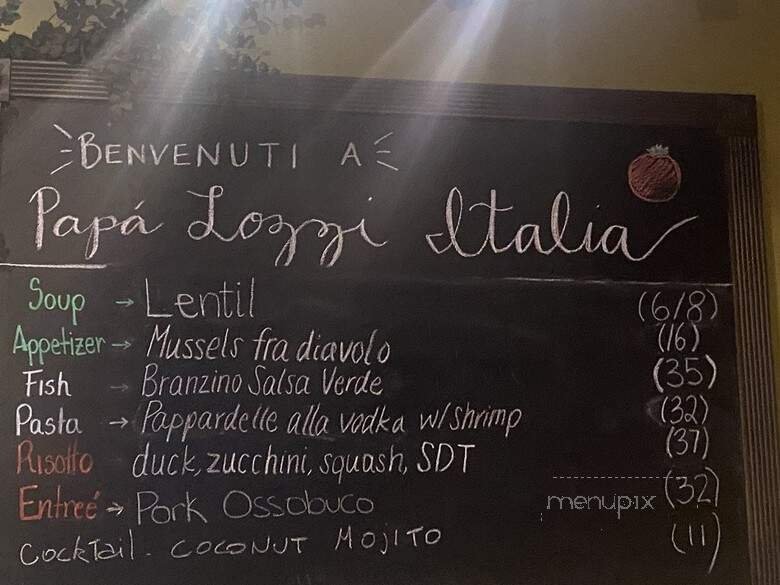 BENVENUTI A
Papá Lozzi Italia
Soup → Lentil (6/8)
Appetizer → Mussels fra diavolo (16)
Fish → Branzino Salsa Verde (35)
Pasta → Pappardelle alla vodka w/shrimp (32)
Risotto duck, zucchini, squash, SDT (37)
Entreé → Pork Ossobuco (32)
Cocktail - COCONUT MOJITO (11)
menupix